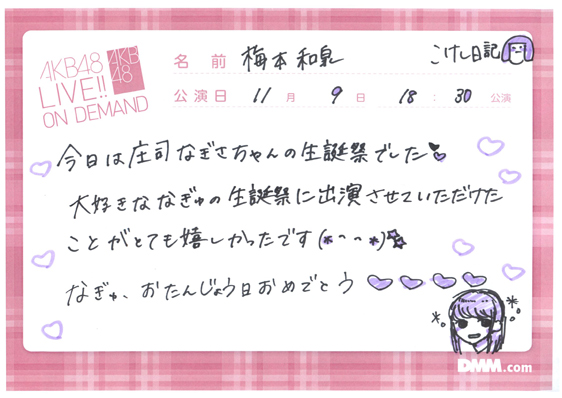 AKB48
LIVE!!
ON DEMAND
AKB
48
名前 梅本和泉 こけし日記
公演日 11月9日 18:30公演
今日は庄司なぎさちゃんの生誕祭でした
大好きななぎゅの生誕祭に出演させていただけた
ことがとても嬉しかったです(*⌒⌒*)
なぎゅ、おたんじょう日おめでとう
DMM.com